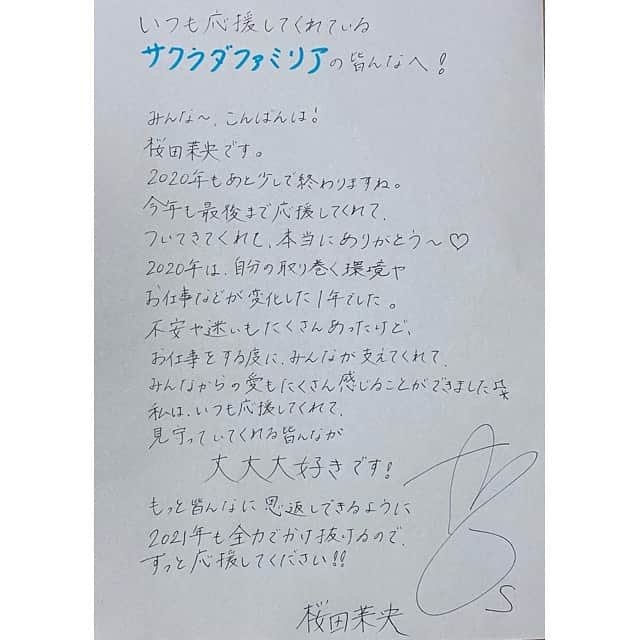 いつも応援してくれている
サクラダファミリアの皆んなへ!
みんな〜、こんばんは!
桜田茉央です。
2020年もあと少しで終わりますね。
今年も最後まで応援してくれて、
ついてきてくれて、本当にありがとう〜♡
2020年は、自分の取り巻く環境や
お仕事などが変化した1年でした。
不安や迷いもたくさんあったけど、
お仕事をする度に、みんなが支えてくれて、
みんなからの愛もたくさん感じることができました
私は、いつも応援してくれて、
見守っていてくれる皆んなが
大大大好きです!
もっと皆んなに恩返しできるように
2021年も全力でかけ抜けるので、
ずっと応援してください!!
S
桜田茉央